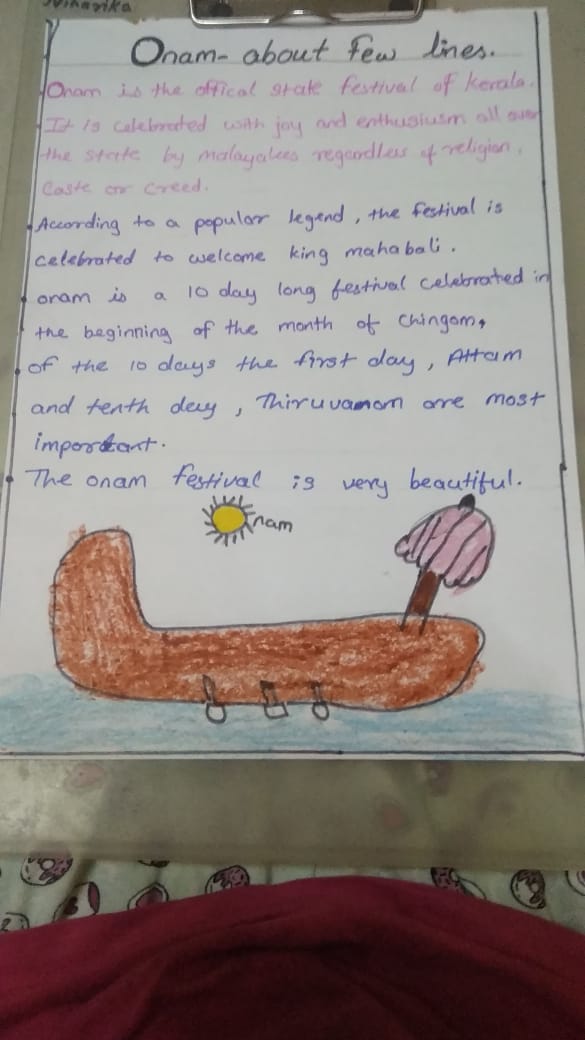 Niharika
Onam- about few lines.
Onam is the offical state festival of kerala.
It is celebrated with joy and enthusiusm all over
the state by malayalees regardless of religion,
Caste or Creed.
According to a popular legend, the festival is
celebrated to welcome king mahabali.
onam is a 10 day long festival celebrated in
the beginning of the month of Chingom,
of the 10 days the first day, Attam
and tenth day, Thiruvamom are most
important.
The onam festival is very beautiful.
Onam